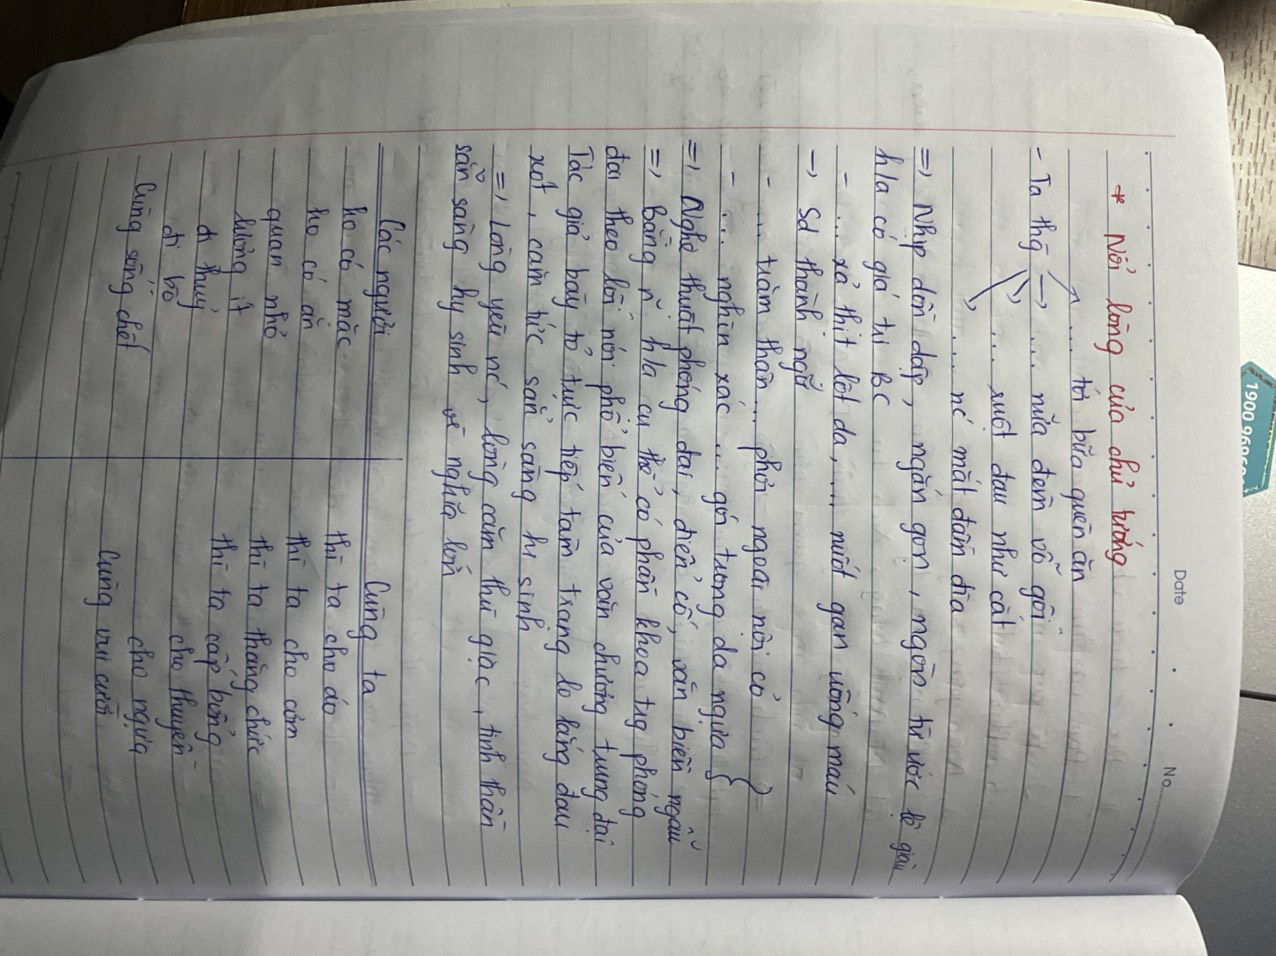 1900 9696
Date . . No
* Nỗi lòng của chủ tướng
... tới bữa quên ăn
- Ta thg → ... nửa đêm vỗ gối
... ruột đau như cắt
... nc' mắt đầm đìa
=> Nhịp dồn dập, ngắn gọn, ngôn từ ước lệ giàu
h/a có giá trị BC
- ... xả thịt lột da, ... nuốt gan uống máu
-> Sd thành ngữ
- ... trăm thân ... phơi ngoài nội cỏ
- ... nghìn xác ... gói trong da ngựa }
=> Nghệ thuật phóng đại, điển cố, văn biền ngẫu
=> Bằng n~ h/a cụ thể có phần khoa trg phóng
đại theo lối nói phổ biến của văn chương trung đại
Tác giả bày tỏ trực tiếp tâm trạng lo lắng đau
xót, căm tức sẵn sàng hi sinh
=> Lòng yêu nc', lòng căm thù giặc, tinh thần
sẵn sàng hy sinh vì nghĩa lớn
Các người | Cùng ta
ko có mặc | thì ta cho áo
ko có ăn | thì ta cho cơm
quan nhỏ | thì ta thăng chức
lương ít | thì ta cấp bổng
đi thuỷ | cho thuyền
đi bộ | cho ngựa
Cùng sống chết | Cùng vui cười